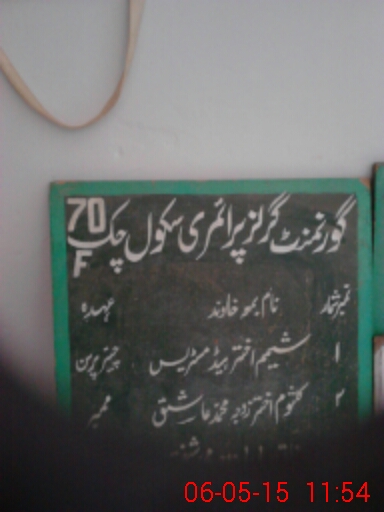 گورنمنٹ گرلز پرائمری سکول چک 70 F
نمبر شمار نام بمعہ خاوند عہدہ
۱ شمیم اختر ہیڈ مسٹریس چیئر پرسن
۲ کلثوم اختر زوجہ محمد عاشق ممبر
06-05-15 11:54